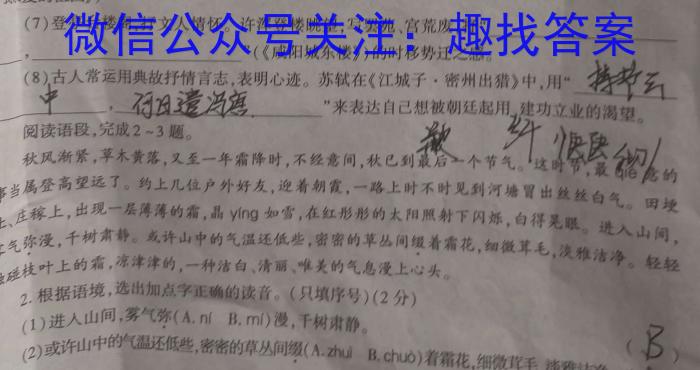 (7)登
微信公众号关注：趣找答案
，(《咸阳城东楼》)的时移势迁之
(8)古人常运用典故抒情言志,表明心迹。苏轼在《江城子·密州出猎》中,用“持节云
中，何日遣冯唐”来表达自己想被朝廷起用,建功立业的渴望。
阅读语段,完成2～3题。
秋风渐紧,草木黄落,又至一年霜降时,不经意间,秋已到最后一个节气。这时节,最qiè意的
事当属登高望远了。约上几位户外好友,迎着朝霞,一路上时不时见到河塘冒出丝丝白气。田埂
上、庄稼上,出现一层薄薄的霜,晶yíng如雪,在红彤彤的太阳照射下闪烁,白得晃眼。进入山间,
雾气弥漫,千树肃静。或许山中的气温还低些,密密的草丛间缀着霜花,细微茸毛,淡雅洁净。轻轻
碰枝叶上的霜,凉津津的,一种洁白、清丽、唯美的气息漫上心头。
2.根据语境,选出加点字正确的读音。(只填序号)(2分)
(1)进入山间,雾气弥(A.ní B.mí)漫,千树肃静。
(B)
(2)或许山中的气温还低些,密密的草丛间缀(A.zhuì B.chuò)着霜花,细微茸毛,淡雅洁净